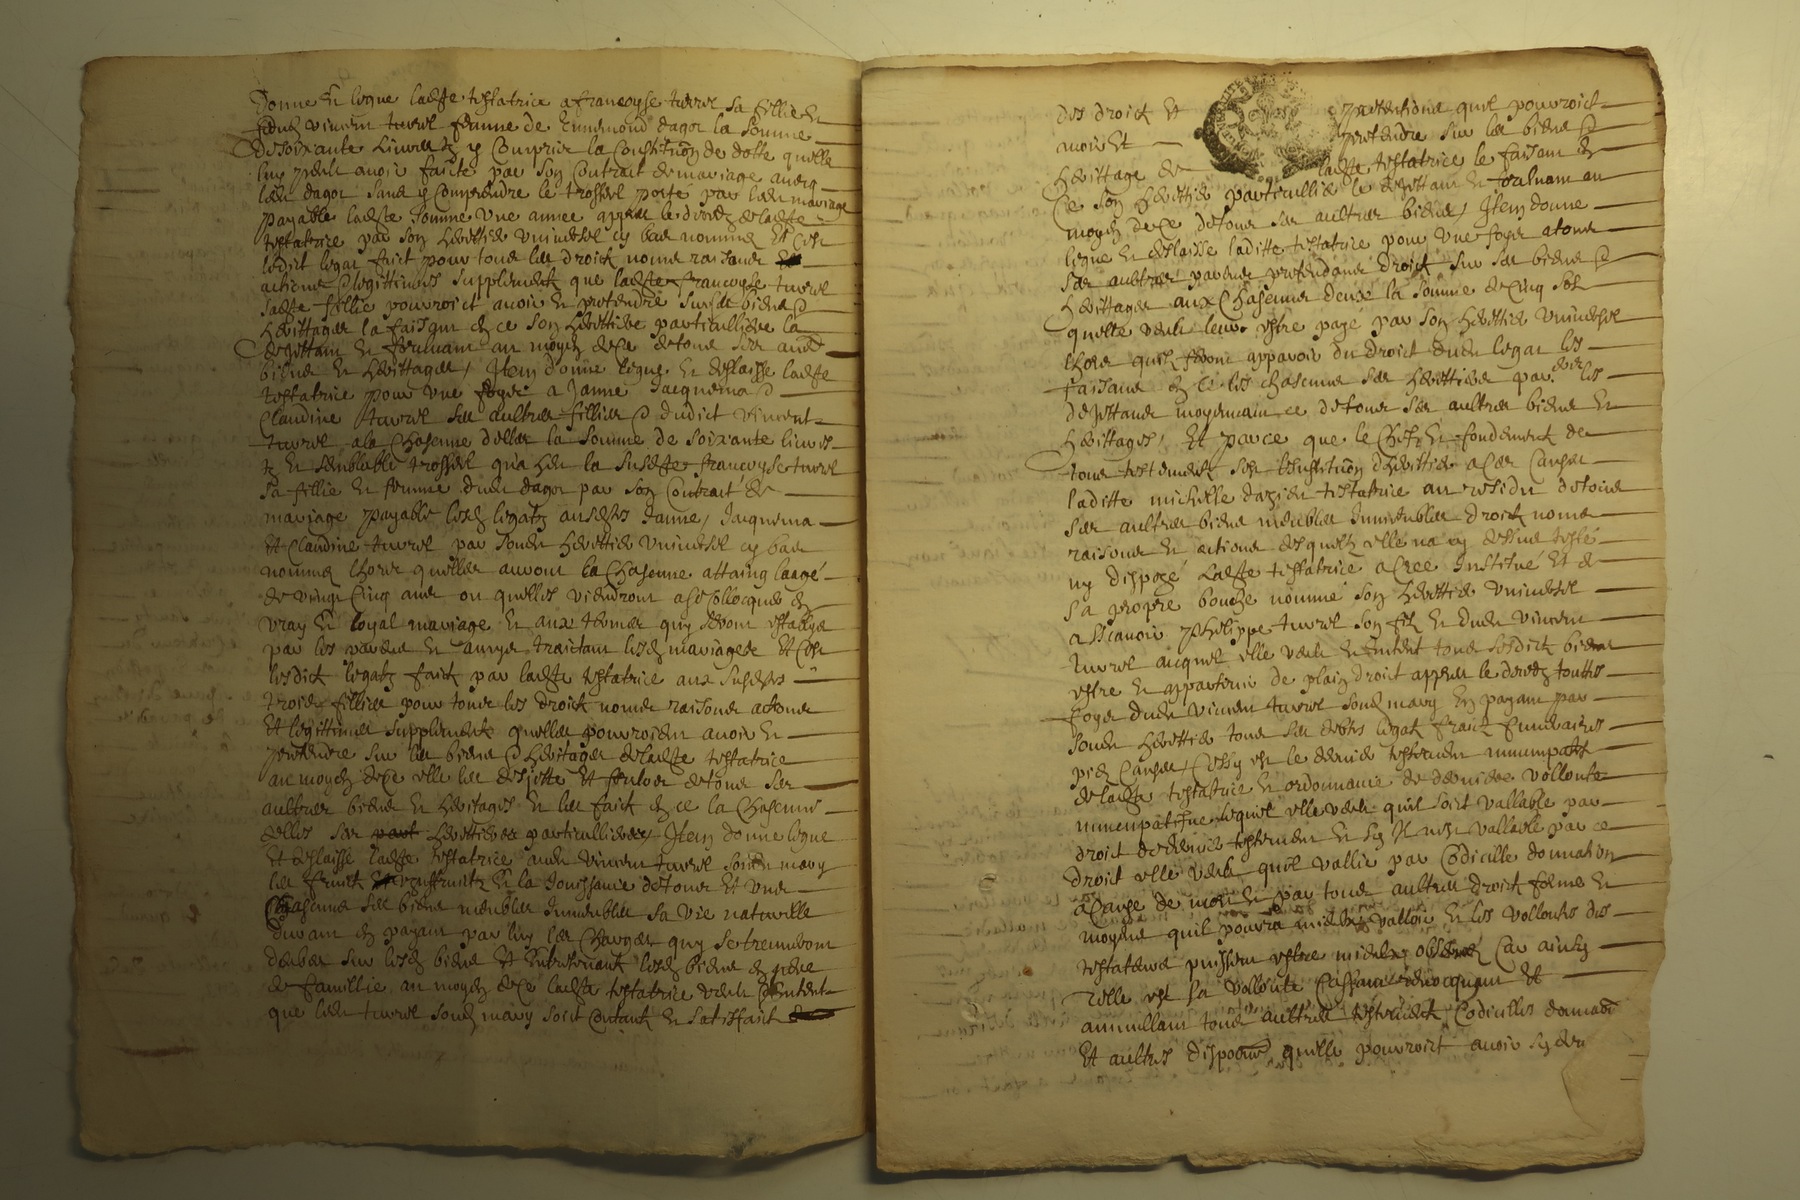 Donne Et legue ladtte testatrice a francoyse turrel sa fillie Et
dudt vincent turrel femme de Ennemond dagot la somme
desoixante Livres tz y Comprise la Constitution de dotte quelle
luy peult avoir faicte par son Contract de mariage avecq
ledt dagot sans y Comprendre le trossel porté par ledt mariage
payable ladtte somme une annee appres le decedz deladtte
testatrice par son heretier universel cy bas nommé Et C'est
ledict legat faict pour tous les droictz noms raisons
actions & legittimes supplementz que ladtte francoyse turrel
sadtte fillie pouvroict avoir Et pretendre sur ses biens &
herittages la faisant en ce son herettiere particulliere la
dejettant Et forluant au moyen dece detous ses aultres
biens Et herittages / Item donne legue Et deslaisse ladtte
testatrice pour une foys a Janne Jacquema &
Claudine turrel ses aultres fillies & dudict vincent
turrel a la Chascune d'elles la somme de soixante livres
tz Et semblable trossel qu'a heu la susdtte francoyse turrel
sa fillie Et femme dudt dagot par son Contract de
mariage payable lesdz legatz ausdtes Janne / Jacquema
Et Claudine turrel par sondt herettier universel cy bas
nommé lhors quelles auront la Chascune attaing laagé
de vingt Cinq ans ou quelles viendront a se Collocquer en
vray Et loyal mariage Et aux termes quy seront establys
par les parens Et amys traictant lesdz mariages Et C'est
lesdictz legatz faictz par ladtte testatrice aux susdtes
trois fillies pour tous les droictz noms raisons actions
Et legittimes supplementz quelles pouvroient avoir Et
pretendre sur les biens & herittages deladtte testatrice
au moyen dece elle les desjette Et forlue detous ses
aultres biens Et heritages Et les faict en ce la Chascune
delles ses herettieres particullieres / Item donne legue
Et deslaisse ladtte testatrice audt vincent turrel sondt mary
les fruictz usuffruictz Et la Jouissance detous Et uns
Chascuns ses biens meubles Immeubles sa vie naturelle
durant en payant par luy les Charges quy se treuveront
deubes sur lesdz biens Et Entretenant lesdz biens en pere
de famillie au moyen dece ladtte testatrice veult & Entent
que ledt turrel sondt mary soict Contant Et satisfaict
des droictz Et pretentions quil pouvroict
avoir Et pretendre sur les biens &
herittage de ladtte testatrice le faisant en
Ce son herettier particullier le dejettant Et forluant au
moyen dece detous ses aultres biens / Item donne
legue Et deslaisse laditte testatrice pour une foys atous
ses aultres parens pretendans droict sur ses biens &
herittages aux Chascuns deulx la somme de Cinq solz
quelle veult leurs estre payé par son herettier universel
lhors quilz feront apparoir du droict dudt legat les
faisans en ce les chascuns ses herettiers particuliers les
dejettans moyennant ce detous ses aultres biens Et
herittages / Et parce que le Chefz Et fondement de
tous testementz est l'Institution d'herettier a Ces Causes
laditte michelle dazier testatrice au residu detous
ses aultres biens meubles Immeubles droictz noms
raisons Et actions desquelz elle na cy dessus testé
ny disposé ladtte testatrice a Cree Institué Et de
sa propre bouche nommé son herettier universel
a scavoir Phelippe turrel son filz Et dudt vincent
turrel aucquel elle veult Et Entent tous sesdictz biens
estre Et appartenir de plain droit appres le decedz touttes
foys dudt vincent turrel sondt mary En payant par
sondt herettier tous ses debtes legatz fraictz funeraires
pies Causes / Cessy est le dernier testement nuncupatif
deladtte testatrice Et ordonnance de derniere vollonte
nuncupatifve lequel elle veult quil soict vallable par
droict de dernier testement Et sy Il nest vallable par ce
droict elle veult quil vallie par Codicille donnation
a Cause de mort Et par tous aultres droictz formes Et
moyens quil pourra mieulx valloir Et les vollontes des
testateurs puissent estre mieulx observé Car ainsy
telle est sa vollonte Cassant revocquant Et
annullant tous aultres testementz Codicilles donnaons
Et aultres dispoons quelle pouvroict avoir sy devt